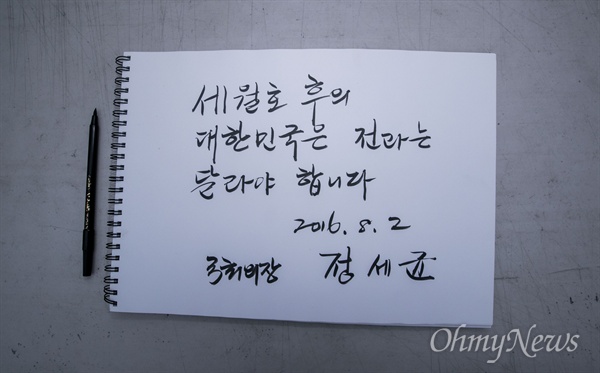 세월호 후의
대한민국은 전과는
달라야 합니다
2016. 8. 2
국회의장 정세균
OhmyNews